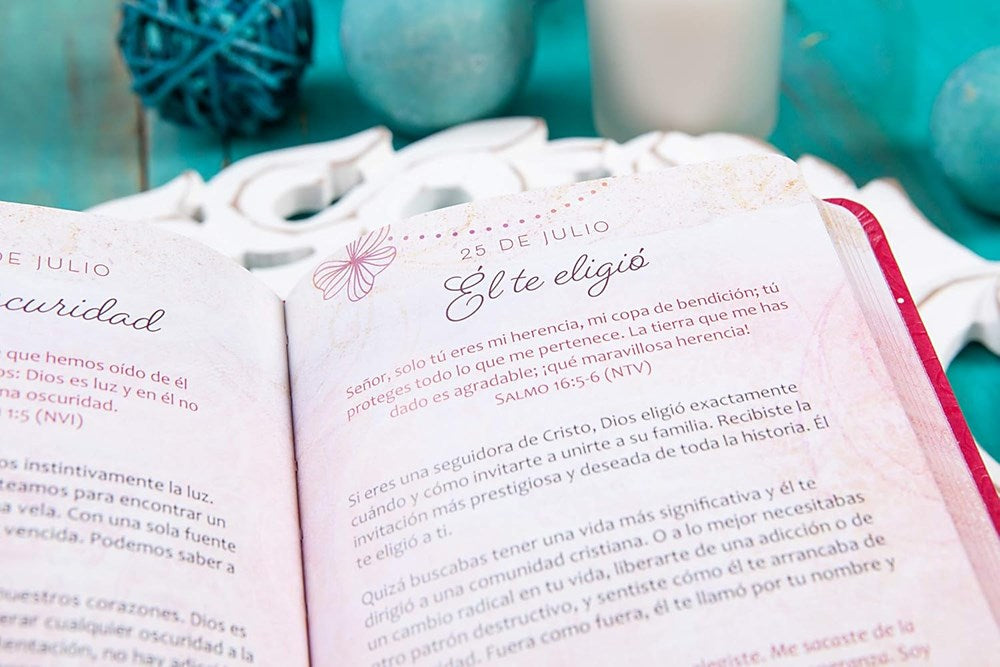 DE JULIO
curidad
que hemos oído de él
os: Dios es luz y en él no
na oscuridad.
1:5 (NVI)
os instintivamente la luz.
teamos para encontrar un
a vela. Con una sola fuente
vencida. Podemos saber a
nuestros corazones. Dios es
erar cualquier oscuridad a la
entación, no hay
25 DE JULIO
Él te eligió
Señor, solo tú eres mi herencia, mi copa de bendición; tú
proteges todo lo que me pertenece. La tierra que me has
dado es agradable; ¡qué maravillosa herencia!
SALMO 16:5-6 (NTV)
Si eres una seguidora de Cristo, Dios eligió exactamente
cuándo y cómo invitarte a unirte a su familia. Recibiste la
invitación más prestigiosa y deseada de toda la historia. Él
te eligió a ti.
Quizá buscabas tener una vida más significativa y él te
dirigió a una comunidad cristiana. O a lo mejor necesitabas
un cambio radical en tu vida, liberarte de una adicción o de
otro patrón destructivo, y sentiste cómo él te arrancaba de
idad. Fuera como fuera, él te llamó por tu nombre y
egiste. Me sacaste de la
Soy